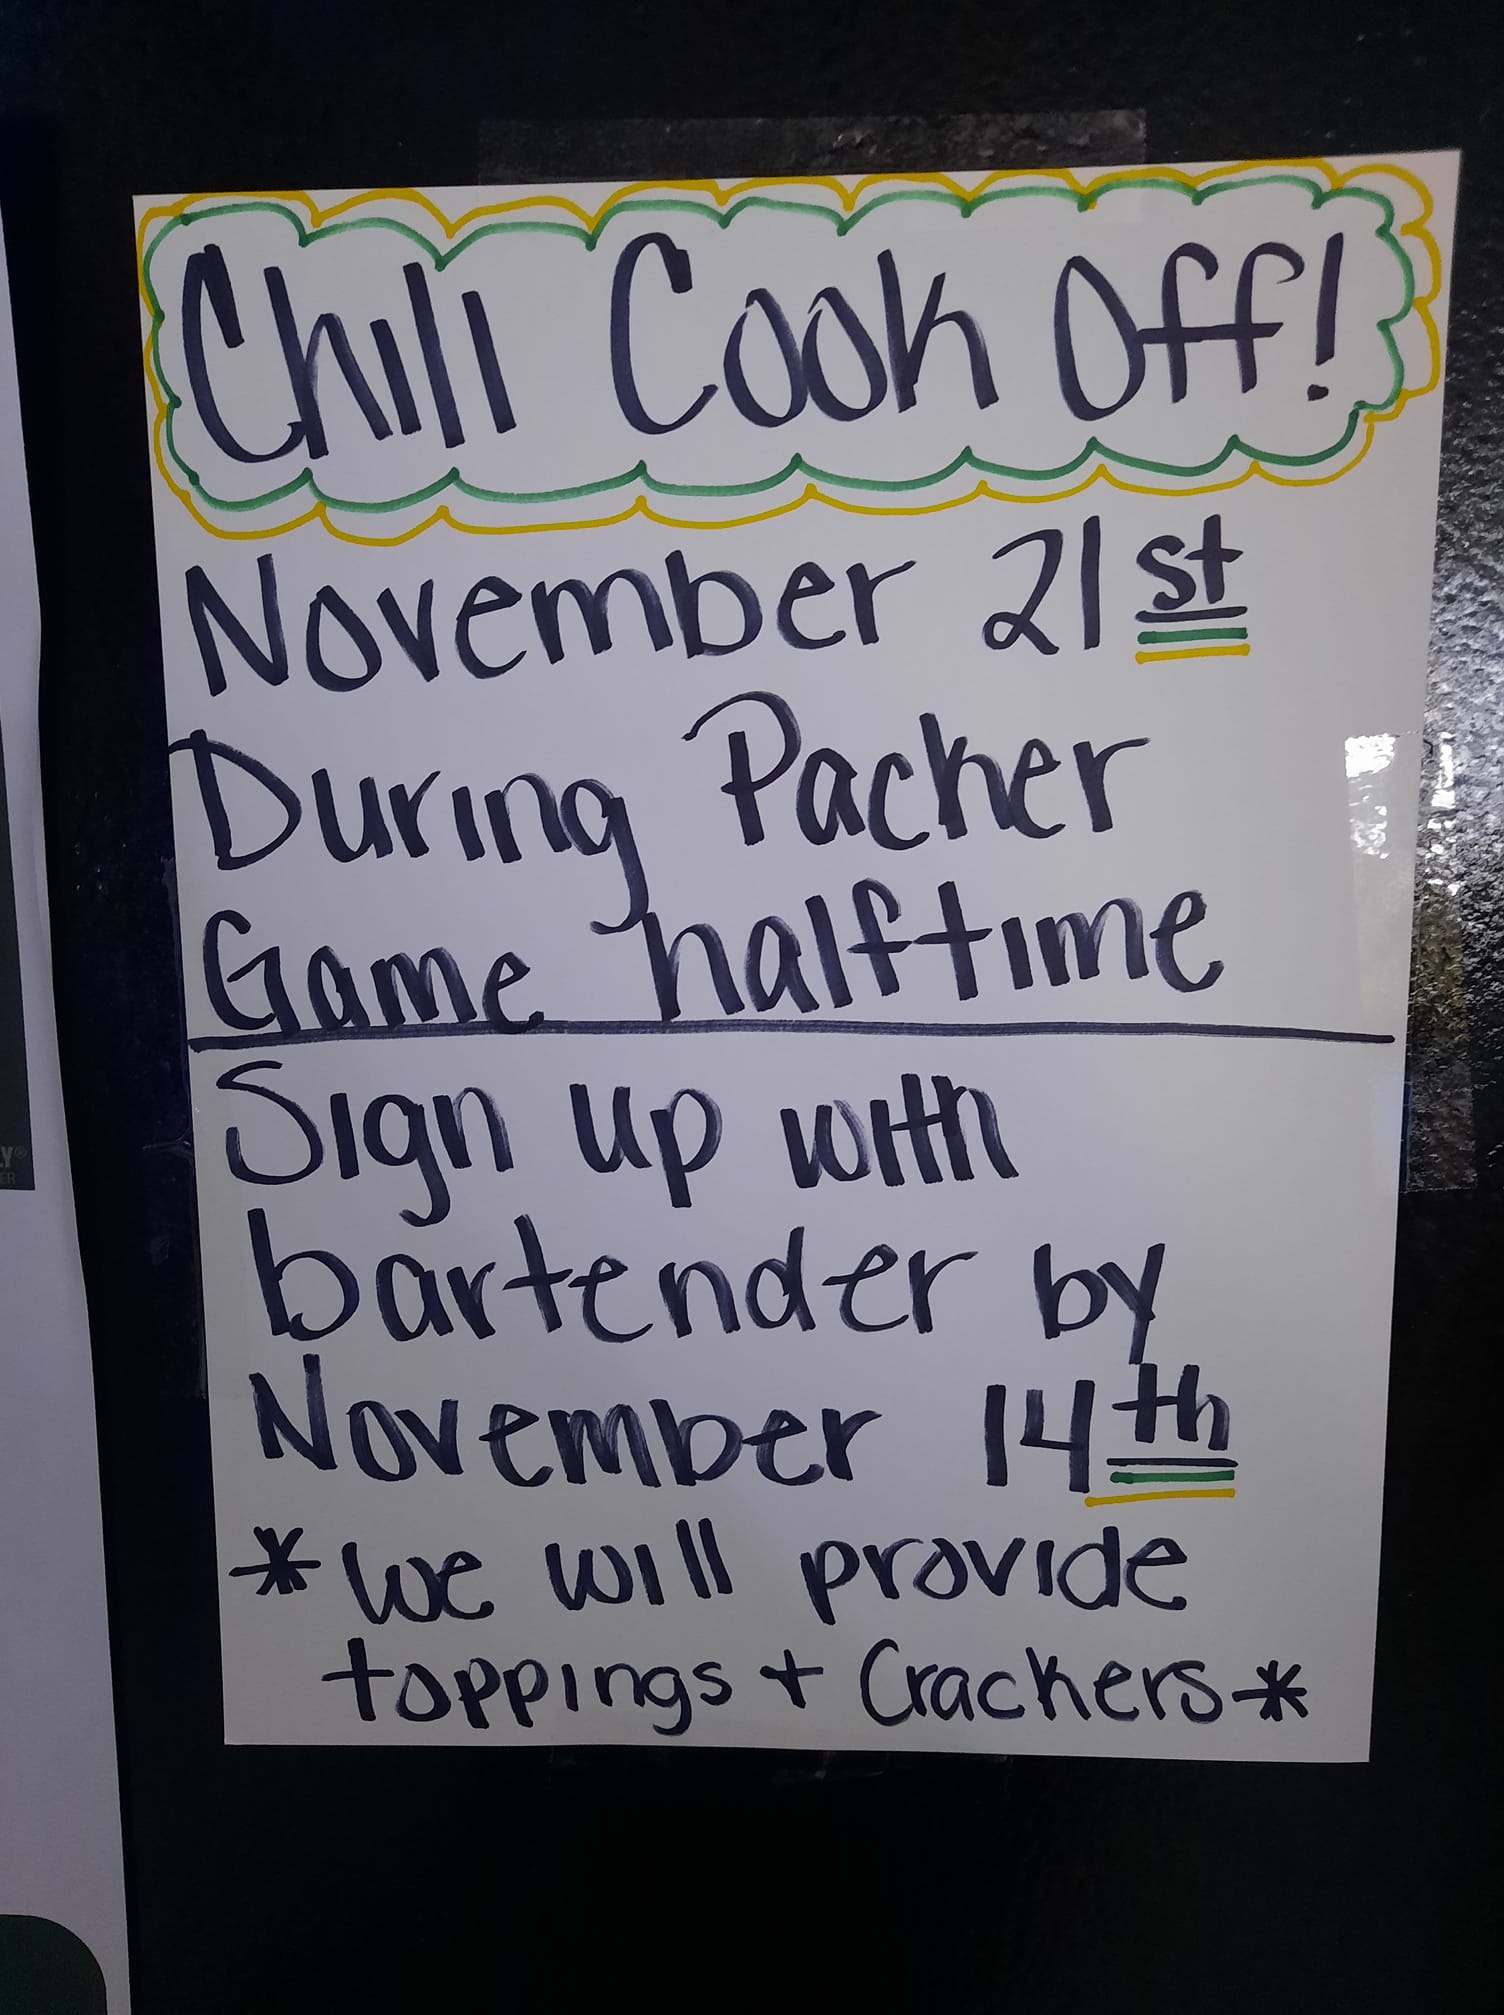 Chili Cook Off!
November 21st
During Packer
Game halftime
Sign up with
bartender by
November 14th
*We will provide
toppings + Crackers*
Y®
ER